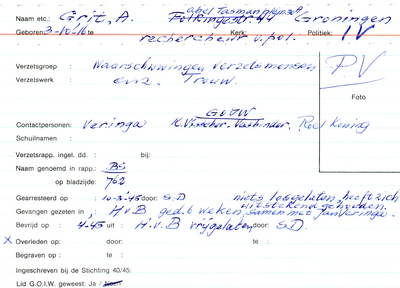 abel Tasmanplein 2e
Naam etc.: Grit, A. Folkingestr. 44 Groningen
Geboren: 3-10-10 te Kerk: Politiek: IV
rechercheur v. pol.
Verzetsgroep : Waarschuwingen verzetsmensen
Verzetswerk en 2. Trouw.
PV
Foto
GOUW
Contactpersonen: Veringa K. Visscher-Vastbinder, Roel Koning
Schuilnaam :
Verzetsrapp. ingel. dd. : bij:
Naam genoemd in rapp.: BS
op bladzijde: 762
Gearresteerd op : 10-3-45 door: S.D niets losgelaten, heeft zich
uitstekend gehouden.
Gevangen gezeten in , H v B ged. t weken, samen met Jan Veringa.
Bevrijd op : 4-45 uit : H. v. B vrijgelaten door: S.D.
X Overleden op: door: te :
Begraven op : te :
Ingeschreven bij de Stichting 40/45:
Lid G.O.I.W. geweest: Ja / Neen